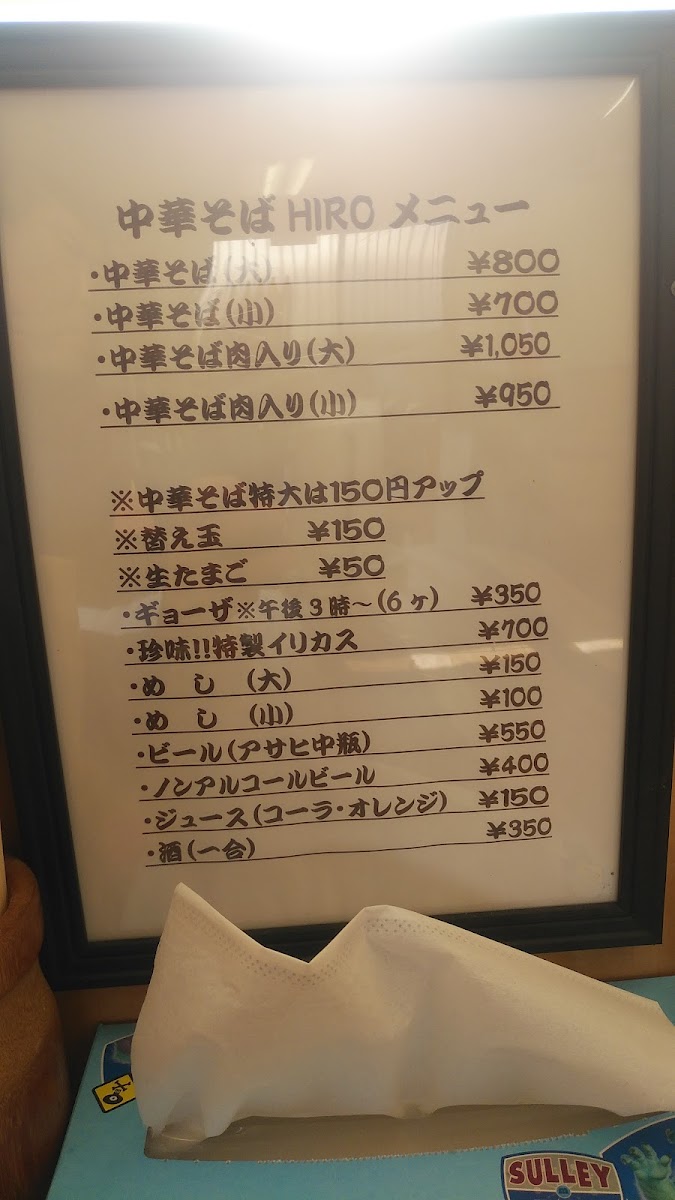 中華そば HIRO メニュー
・中華そば(大) ¥800
・中華そば(小) ¥700
・中華そば肉入り(大) ¥1,050
・中華そば肉入り(小) ¥950
※中華そば特大は150円アップ
※替え玉 ¥150
※生たまご ¥50
・ギョーザ※午後3時〜(6ヶ) ¥350
・珍味!!特製イリカス ¥700
・めし (大) ¥150
・めし (小) ¥100
・ビール(アサヒ中瓶) ¥550
・ノンアルコールビール ¥400
・ジュース(コーラ・オレンジ) ¥150
・酒(一合) ¥350
SULLEY